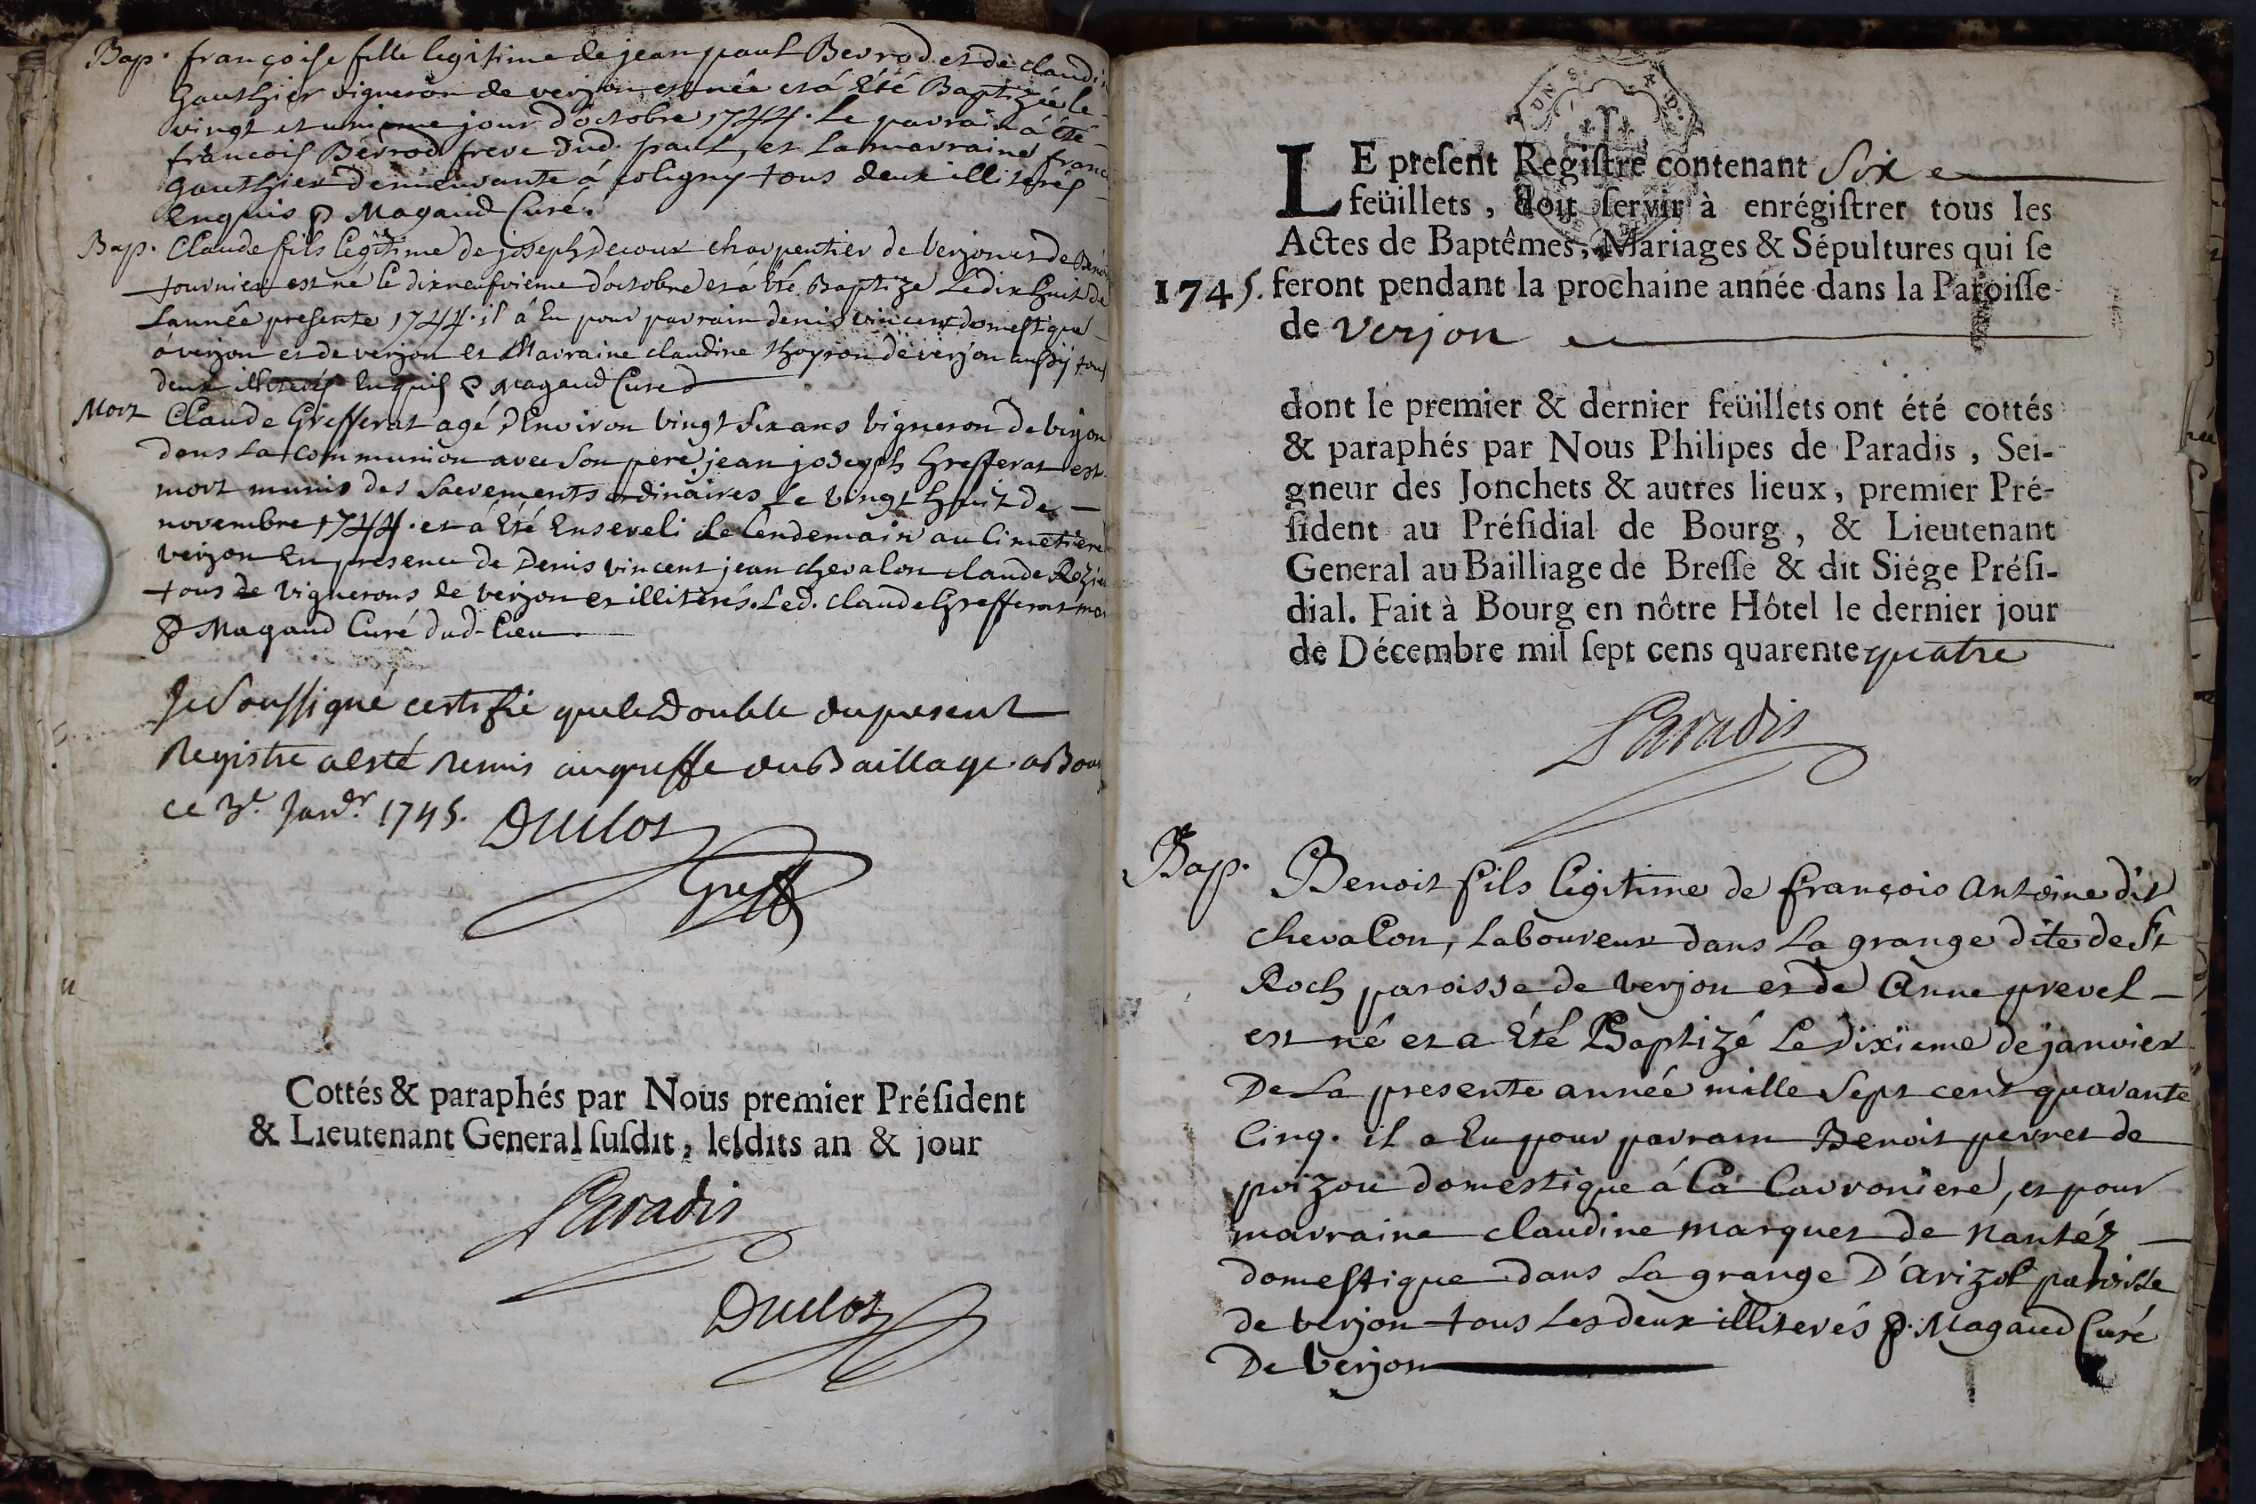 Bap. françoise fille legitime de jean paul Bevrod et de claudi
Gauthier vigneron de verjon, est née et á Eté Baptizée le
vingt et unieme jour d'octobre 1744. Le parrain á été
francois Bevrod frere dud. paul, et la marraine franc
Gauthier demeurante á coligny tous deux illiterés
Enquis P Magaud Curé.
Bap. Claude fils legitime de joseph decour charpentier de Verjon et de Benoi
tournier est né le dixneufvieme d'octobre et á Eté Baptizé Le dix huit de
Lannée presente 1744. il á Eu pour parrain denis vincent domestique
á verjon et de verjon et Marraine claudine thoyron de verjon aussy tous
deux illiterés Enquis P Magaud Curé
Mort Claude Grefferat agé d'Environ vingt six ans Vigneron de Verjon
dans La Communion avec Son pere jean joseph Grefferat est
mort munis des Sacrements ordinaires Le vingt huit de
novembre 1744. et á Eté Enseveli Le Lendemain au Cimetiere
Verjon En presence de Denis vincent jean chevalon claude Rozier
tous de vignerons de verjon et illiterés. Led. claude Grefferat mor
P Magaud Curé dud. Lieu
Je Soussigné certifie que le Double du present
Registre a esté remis au greffe du Baillage a Bour
ce 3e. Janvr. 1745. Duclos
Greff
Cottés & paraphés par Nous premier Préſident
& Lieutenant General ſuſdit, leſdits an & jour
Paradis
Duclos
LE preſent Regiſtre contenant Six
feüillets, doit ſervir à enrégiſtrer tous les
Actes de Baptêmes, Mariages & Sépultures qui ſe
1745. feront pendant la prochaine année dans la Paroiſſe
de Verjon
dont le premier & dernier feüillets ont été cottés
& paraphés par Nous Philipes de Paradis, Sei-
gneur des Jonchets & autres lieux, premier Pré-
ſident au Préſidial de Bourg, & Lieutenant
General au Bailliage de Breſſe & dit Siége Préſi-
dial. Fait à Bourg en nôtre Hôtel le dernier jour
de Décembre mil ſept cens quarente quatre
Paradis
Bap. Benoit fils legitime de françois Antoine dit
chevalon, Laboureur dans La grange dite de St
Roch paroisse de Verjon et de Anne prevel
est né et a Eté Baptizé Le dixieme de janvier
De La presente année mille Sept cent quarante
Cinq. il a Eu pour parrain Benoit perret de
poizou domestique á La Carroniere, et pour
marraine claudine marquet de Nantéz
domestique dans La grange D'arizol paroisse
de verjon tous Les deux illiterés P. Magaud Curé
De Verjon